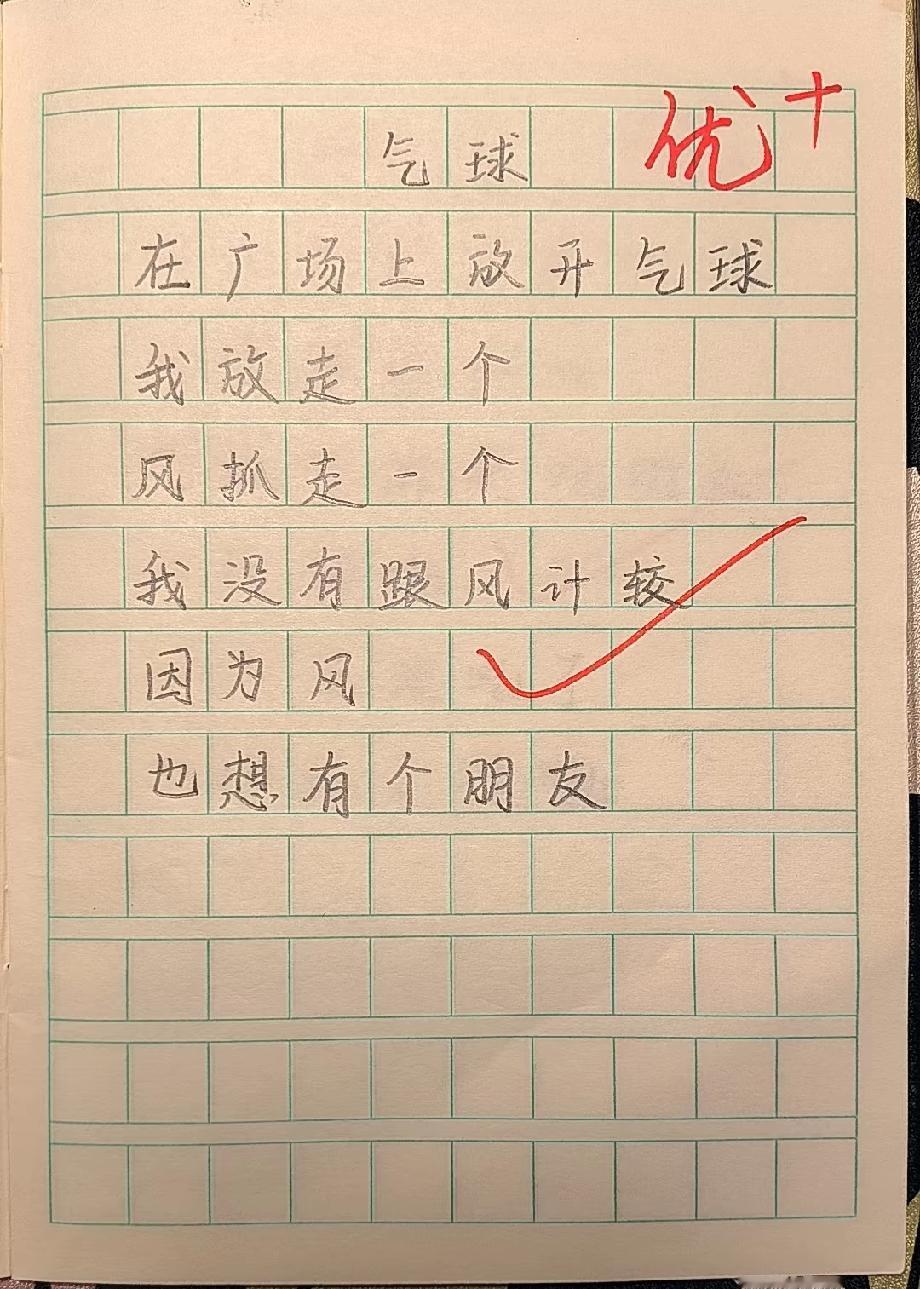 气球
优+
在广场上放开气球
我放走一个
风抓走一个
我没有跟风计较
因为风
也想有个朋友